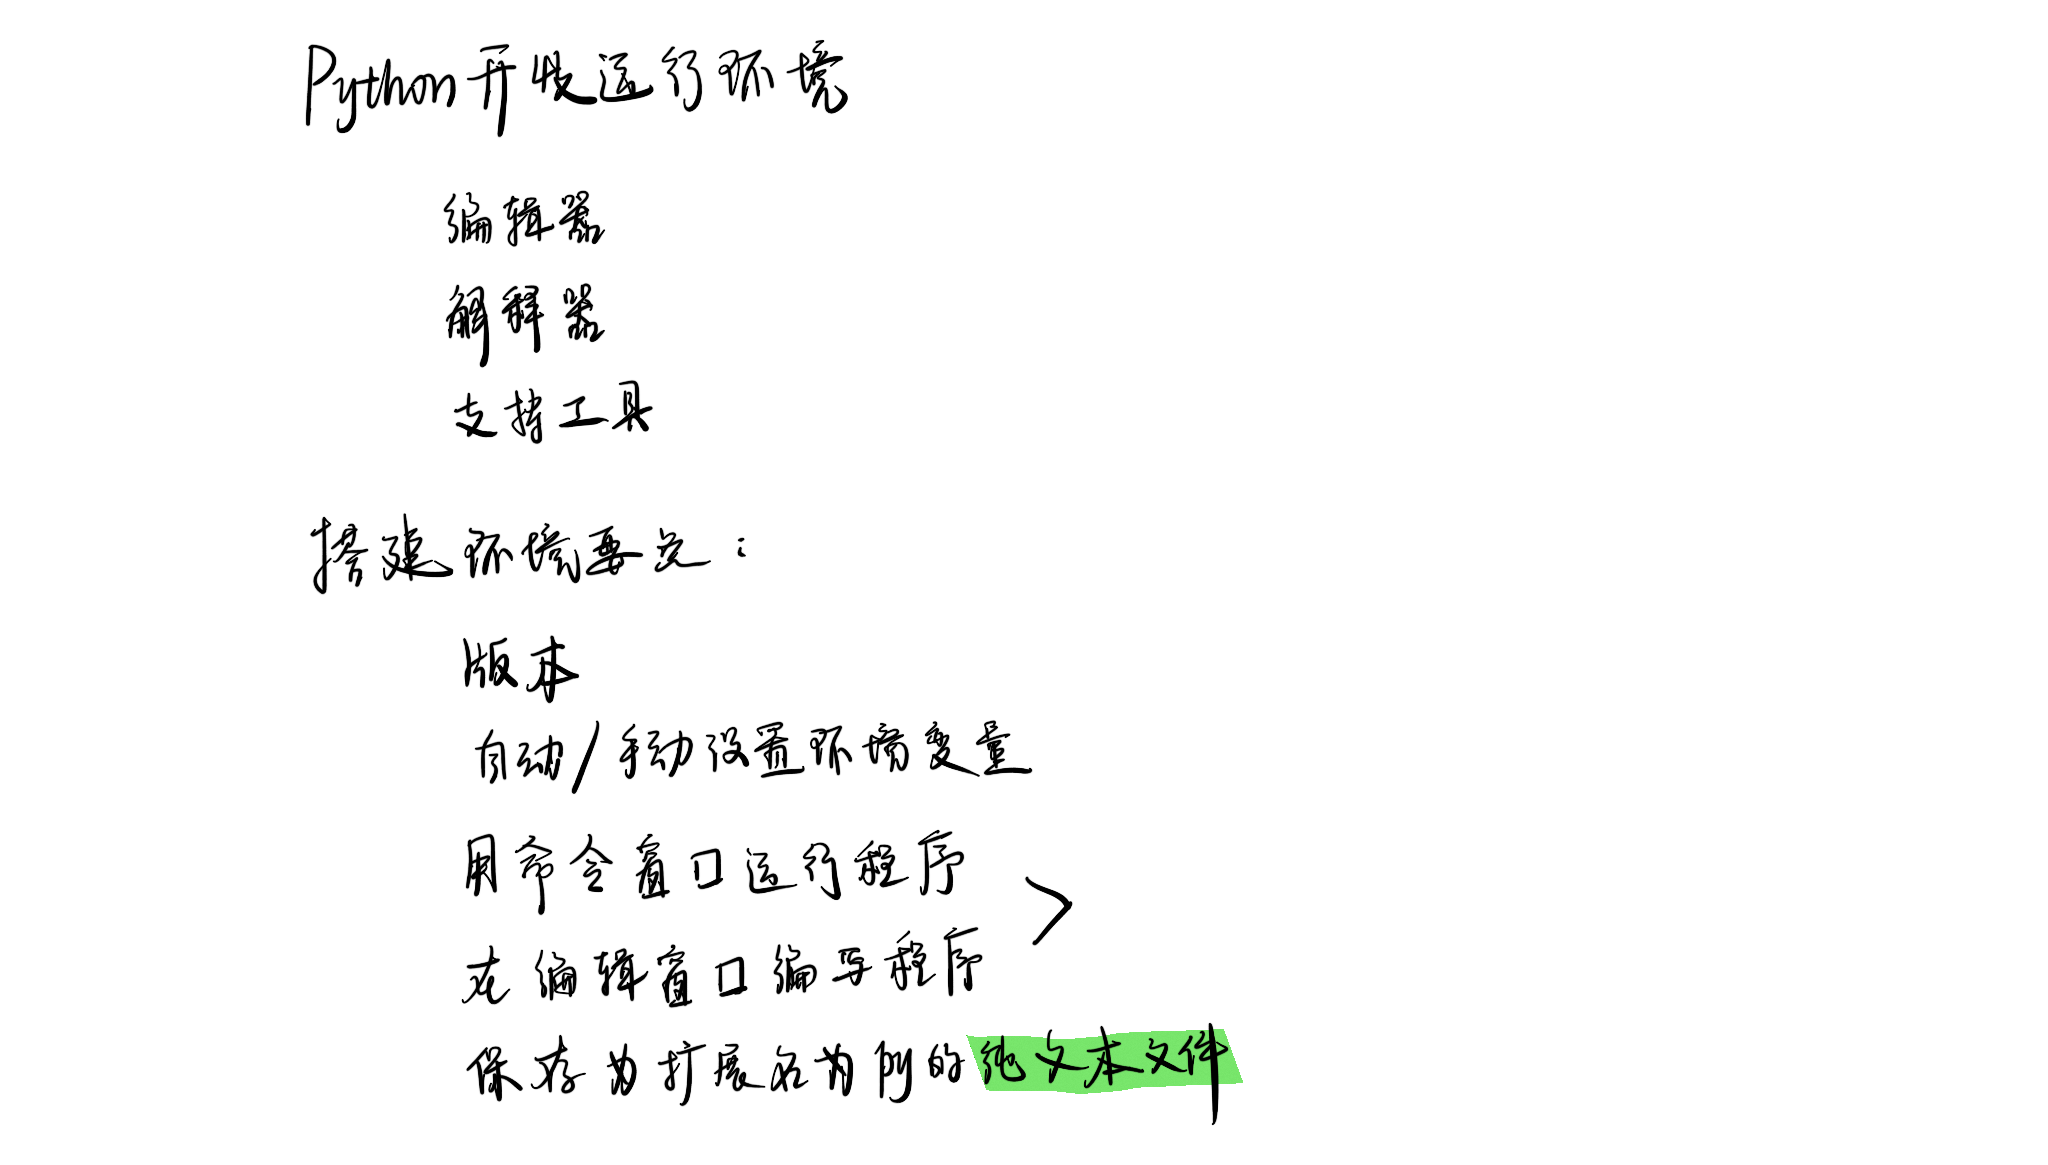 Python开发运行环境
编辑器
解释器
支持工具
搭建环境要点：
版本
自动/手动设置环境变量
用命令窗口运行程序
在编辑窗口编写程序
>
保存为扩展名为py的纯文本文件